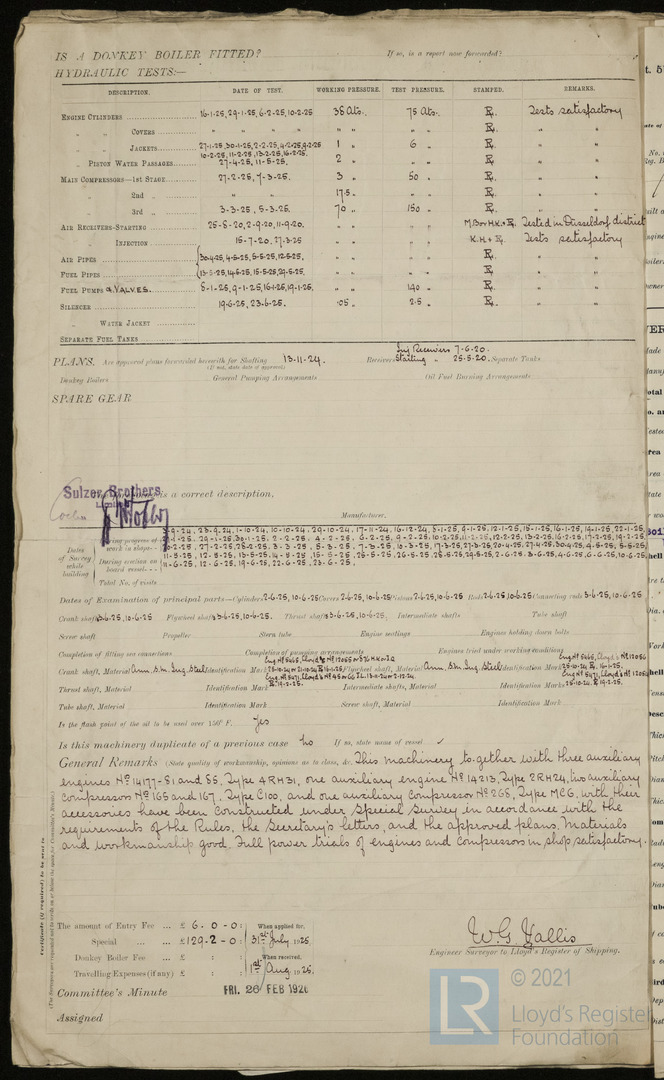 IS A DONKEY BOILER FITTED? If so, is a report now forwarded?
HYDRAULIC TESTS:—
DESCRIPTION. DATE OF TEST. WORKING PRESSURE. TEST PRESSURE. STAMPED. REMARKS.
ENGINE CYLINDERS 16-1-25, 29-1-25, 6-2-25, 10-2-25 38 Ats. 75 Ats. Tests satisfactory
" " COVERS " " " " " " " " " "
" " JACKETS 27-1-25, 30-1-25, 2-2-25, 4-2-25, 9-2-25 1 " 6 " " "
10-2-25, 11-2-25, 13-2-25, 16-2-25.
" PISTON WATER PASSAGES 27-4-25, 11-5-25. 2 " " " " "
MAIN COMPRESSORS—1st STAGE 27-2-25, 7-3-25. 3 " 50 " " "
" " 2nd " " " 17.5 " " " " "
" " 3rd " 3-3-25, 5-3-25. 70 " 150 " " "
AIR RECEIVERS-STARTING 25-8-20, 2-9-20, 11-9-20. " " " " Tested in Düsseldorf district
" INJECTION 15-7-20, 27-3-25 " " " " K.H. + Tests satisfactory
AIR PIPES 30-4-25, 4-5-25, 5-5-25, 12-5-25. " " " " " "
FUEL PIPES 13-5-25, 14-5-25, 15-5-25, 29-5-25. " " " " " "
FUEL PUMPS & VALVES. 8-1-25, 9-1-25, 16-1-25, 19-1-25. " " 140 " " "
SILENCER 19-6-25, 23-6-25. .05 " 2.5 " " "
" WATER JACKET
SEPARATE FUEL TANKS
PLANS. Are approved plans forwarded herewith for Shafting 13-11-24. Receivers Inj Receivers 7-6-20. Starting " 25-5-20. Separate Tanks
(If not, state date of approval)
Donkey Boilers General Pumping Arrangements Oil Fuel Burning Arrangements
SPARE GEAR
Sulzer Brothers
Limited
is a correct description,
Manufacturer.
Dates of Survey while building
During progress of work in shops - -
During erection on board vessel - - -
Total No. of visits
23-9-24, 1-10-24, 10-10-24, 29-10-24, 17-11-24, 16-12-24, 3-1-25, 9-1-25, 12-1-25, 15-1-25, 16-1-25, 19-1-25, 22-1-25,
29-1-25, 30-1-25, 2-2-25, 4-2-25, 6-2-25, 9-2-25, 10-2-25, 11-2-25, 12-2-25, 13-2-25, 16-2-25, 17-2-25, 19-2-25,
27-2-25, 28-2-25, 3-3-25, 5-3-25, 7-3-25, 10-3-25, 17-3-25, 27-3-25, 20-4-25, 27-4-25, 30-4-25, 4-5-25, 5-5-25,
11-5-25, 12-5-25, 13-5-25, 14-5-25, 15-5-25, 25-5-25, 26-5-25, 28-5-25, 29-5-25, 2-6-25, 3-6-25, 4-6-25, 6-6-25, 10-6-25,
11-6-25, 12-6-25, 19-6-25, 22-6-25, 23-6-25,
Dates of Examination of principal parts—Cylinders 2-6-25, 10-6-25 Covers 2-6-25, 10-6-25 Pistons 2-6-25, 10-6-25 Rods 2-6-25, 10-6-25 Connecting rods 3-6-25, 10-6-25
Crank shaft 3-6-25, 10-6-25. Flywheel shaft 3-6-25, 10-6-25. Thrust shaft 3-6-25, 10-6-25, Intermediate shafts Tube shaft
Screw shaft Propeller Stern tube Engine seatings Engines holding down bolts
Completion of fitting sea connections Completion of pumping arrangements Engines tried under working conditions
Crank shaft, Material Ann. S.M. Ing. Steel Identification Mark Flywheel shaft, Material Ann. S.M. Ing. Steel Identification Mark
Thrust shaft, Material Identification Mark Intermediate shafts, Material Identification Marks
Tube shaft, Material Identification Mark Screw shaft, Material Identification Mark
Is the flash point of the oil to be used over 150° F. Yes
Is this machinery duplicate of a previous case No If so, state name of vessel ✓
General Remarks (State quality of workmanship, opinions as to class, &c. This machinery together with three auxiliary
engines Nº 14177-81 and 85, Type 4RH31, one auxiliary engine Nº 14213, Type 2RH24, two auxiliary
compressor Nº 165 and 167, Type C100, and one auxiliary compressor Nº 268, Type MC6, with their
accessories have been constructed under special survey in accordance with the
requirements of the Rules, the Secretary's letters, and the approved plans. Materials
and workmanship good. Full power trials of engines and compressors in shop satisfactory.
Certificate (if required) to be sent to
(The Surveyors are requested not to write on or below the space for Committee's Minute.)
The amount of Entry Fee ... £ 6 . 0 - 0 : When applied for,
Special ... ... £ 129 - 2 - 0 : 31st July 1925.
Donkey Boiler Fee ... £ : : When received,
Travelling Expenses (if any) £ : : 1st Aug. 1925.
W.G. Hallis
Engineer Surveyor to Lloyd's Register of Shipping.
Committee's Minute FRI. 26 FEB 1926
Assigned
LR
© 2021
Lloyd's Register
Foundation